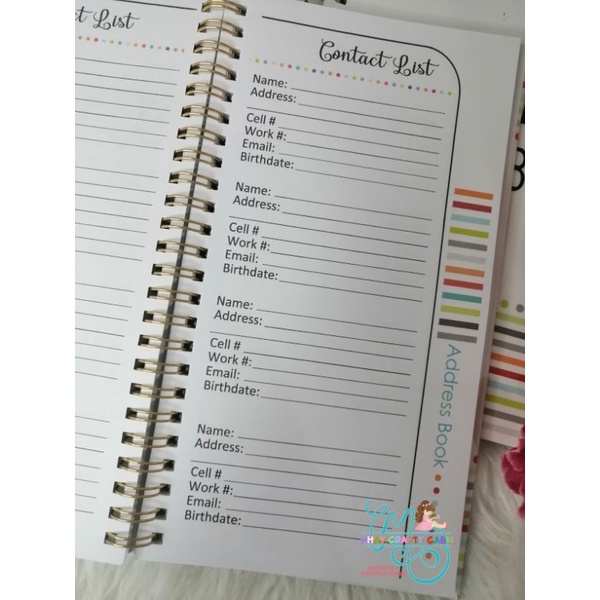 ct List
Contact List
Name:
Address:
Cell #
Work #:
Email:
Birthdate:
Name:
Address:
Cell #
Work #:
Email:
Birthdate:
Name:
Address:
Cell #
Work #:
Email:
Birthdate:
Name:
Address:
Cell #
Work #:
Email:
Birthdate:
Address Book
CRAFTY GABBY